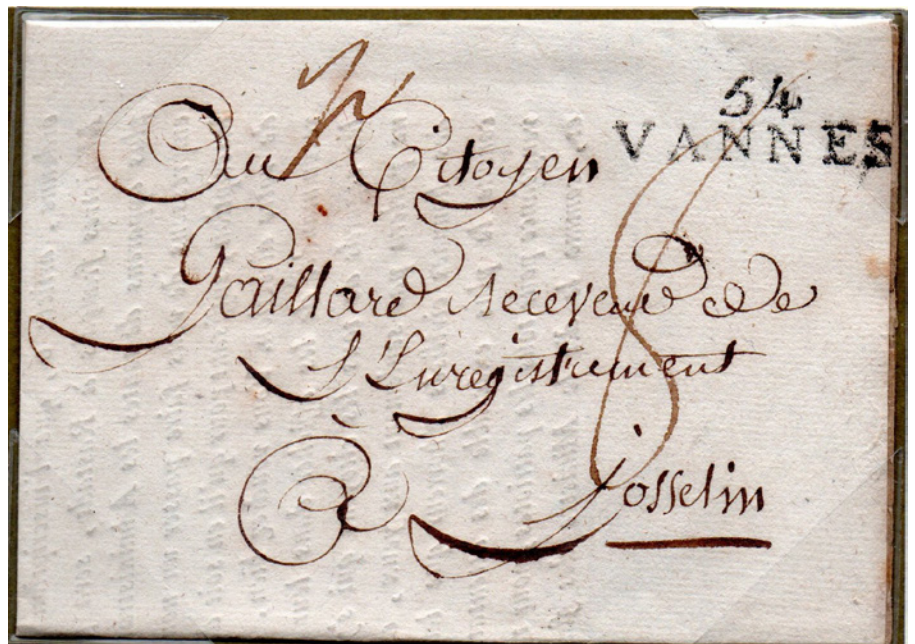 54
VANNES
Au Citoyen
Gaillard Receveur De
L'Enregistrement
à Josselin
8